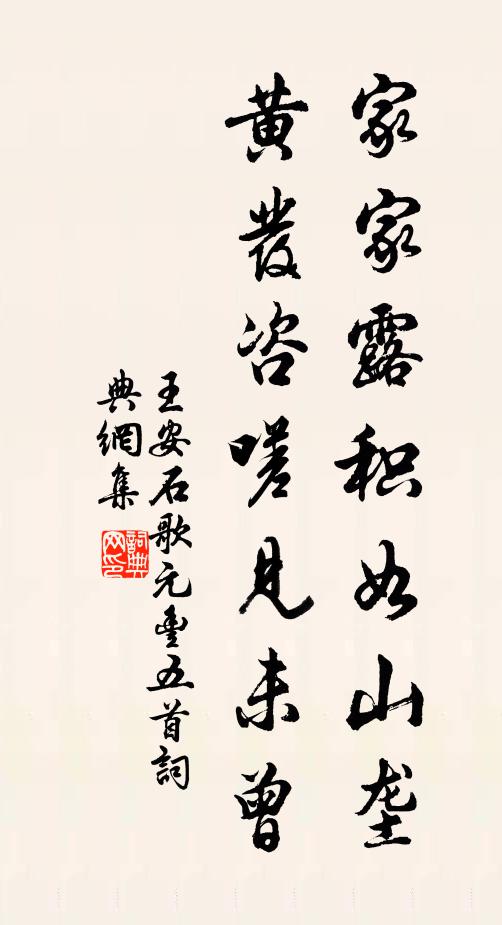 家家露积如山垄
黄發咨嗟見未曾
王安石歌元豐五首詞
典網集
詞典网印